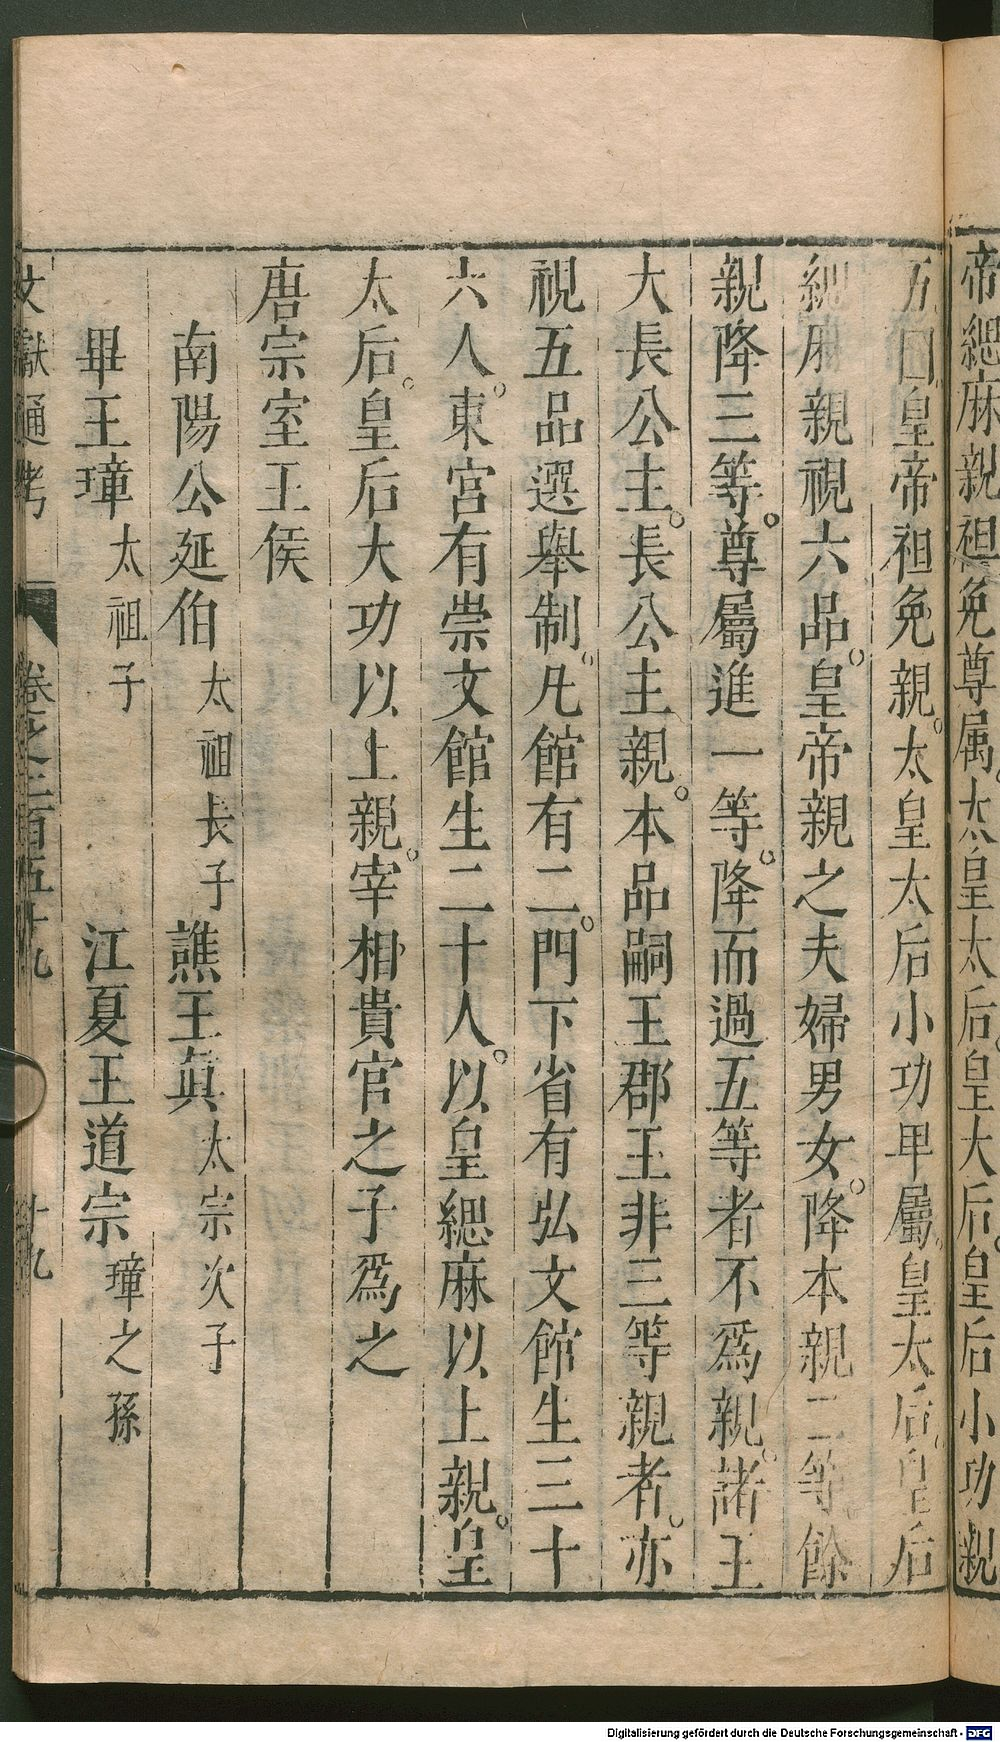 帝緦麻親袒免尊属太皇太后皇大后皇后小功親
五囙皇帝袒免親太皇太后小功卑屬皇太后皇后
緦麻親視六品皇帝親之夫婦男女降本親二等餘
親降三等尊屬進一等降而過五等者不爲親諸王
大長公主長公主親本品嗣王郡王非三等親者亦
視五品選舉制凡館有二門下省有弘文館生三十
六人東宮有崇文館生二十人以皇緦麻以上親皇
太后皇后大功以上親宰相貴官之子爲之
唐宗室王侯
南陽公延伯 太祖長子 譙王眞 太宗次子
畢王璋 太祖子 江夏王道宗 璋之孫
文獻通考 卷之二百五十九 十九
Digitalisierung gefördert durch die Deutsche Forschungsgemeinschaft - DFG